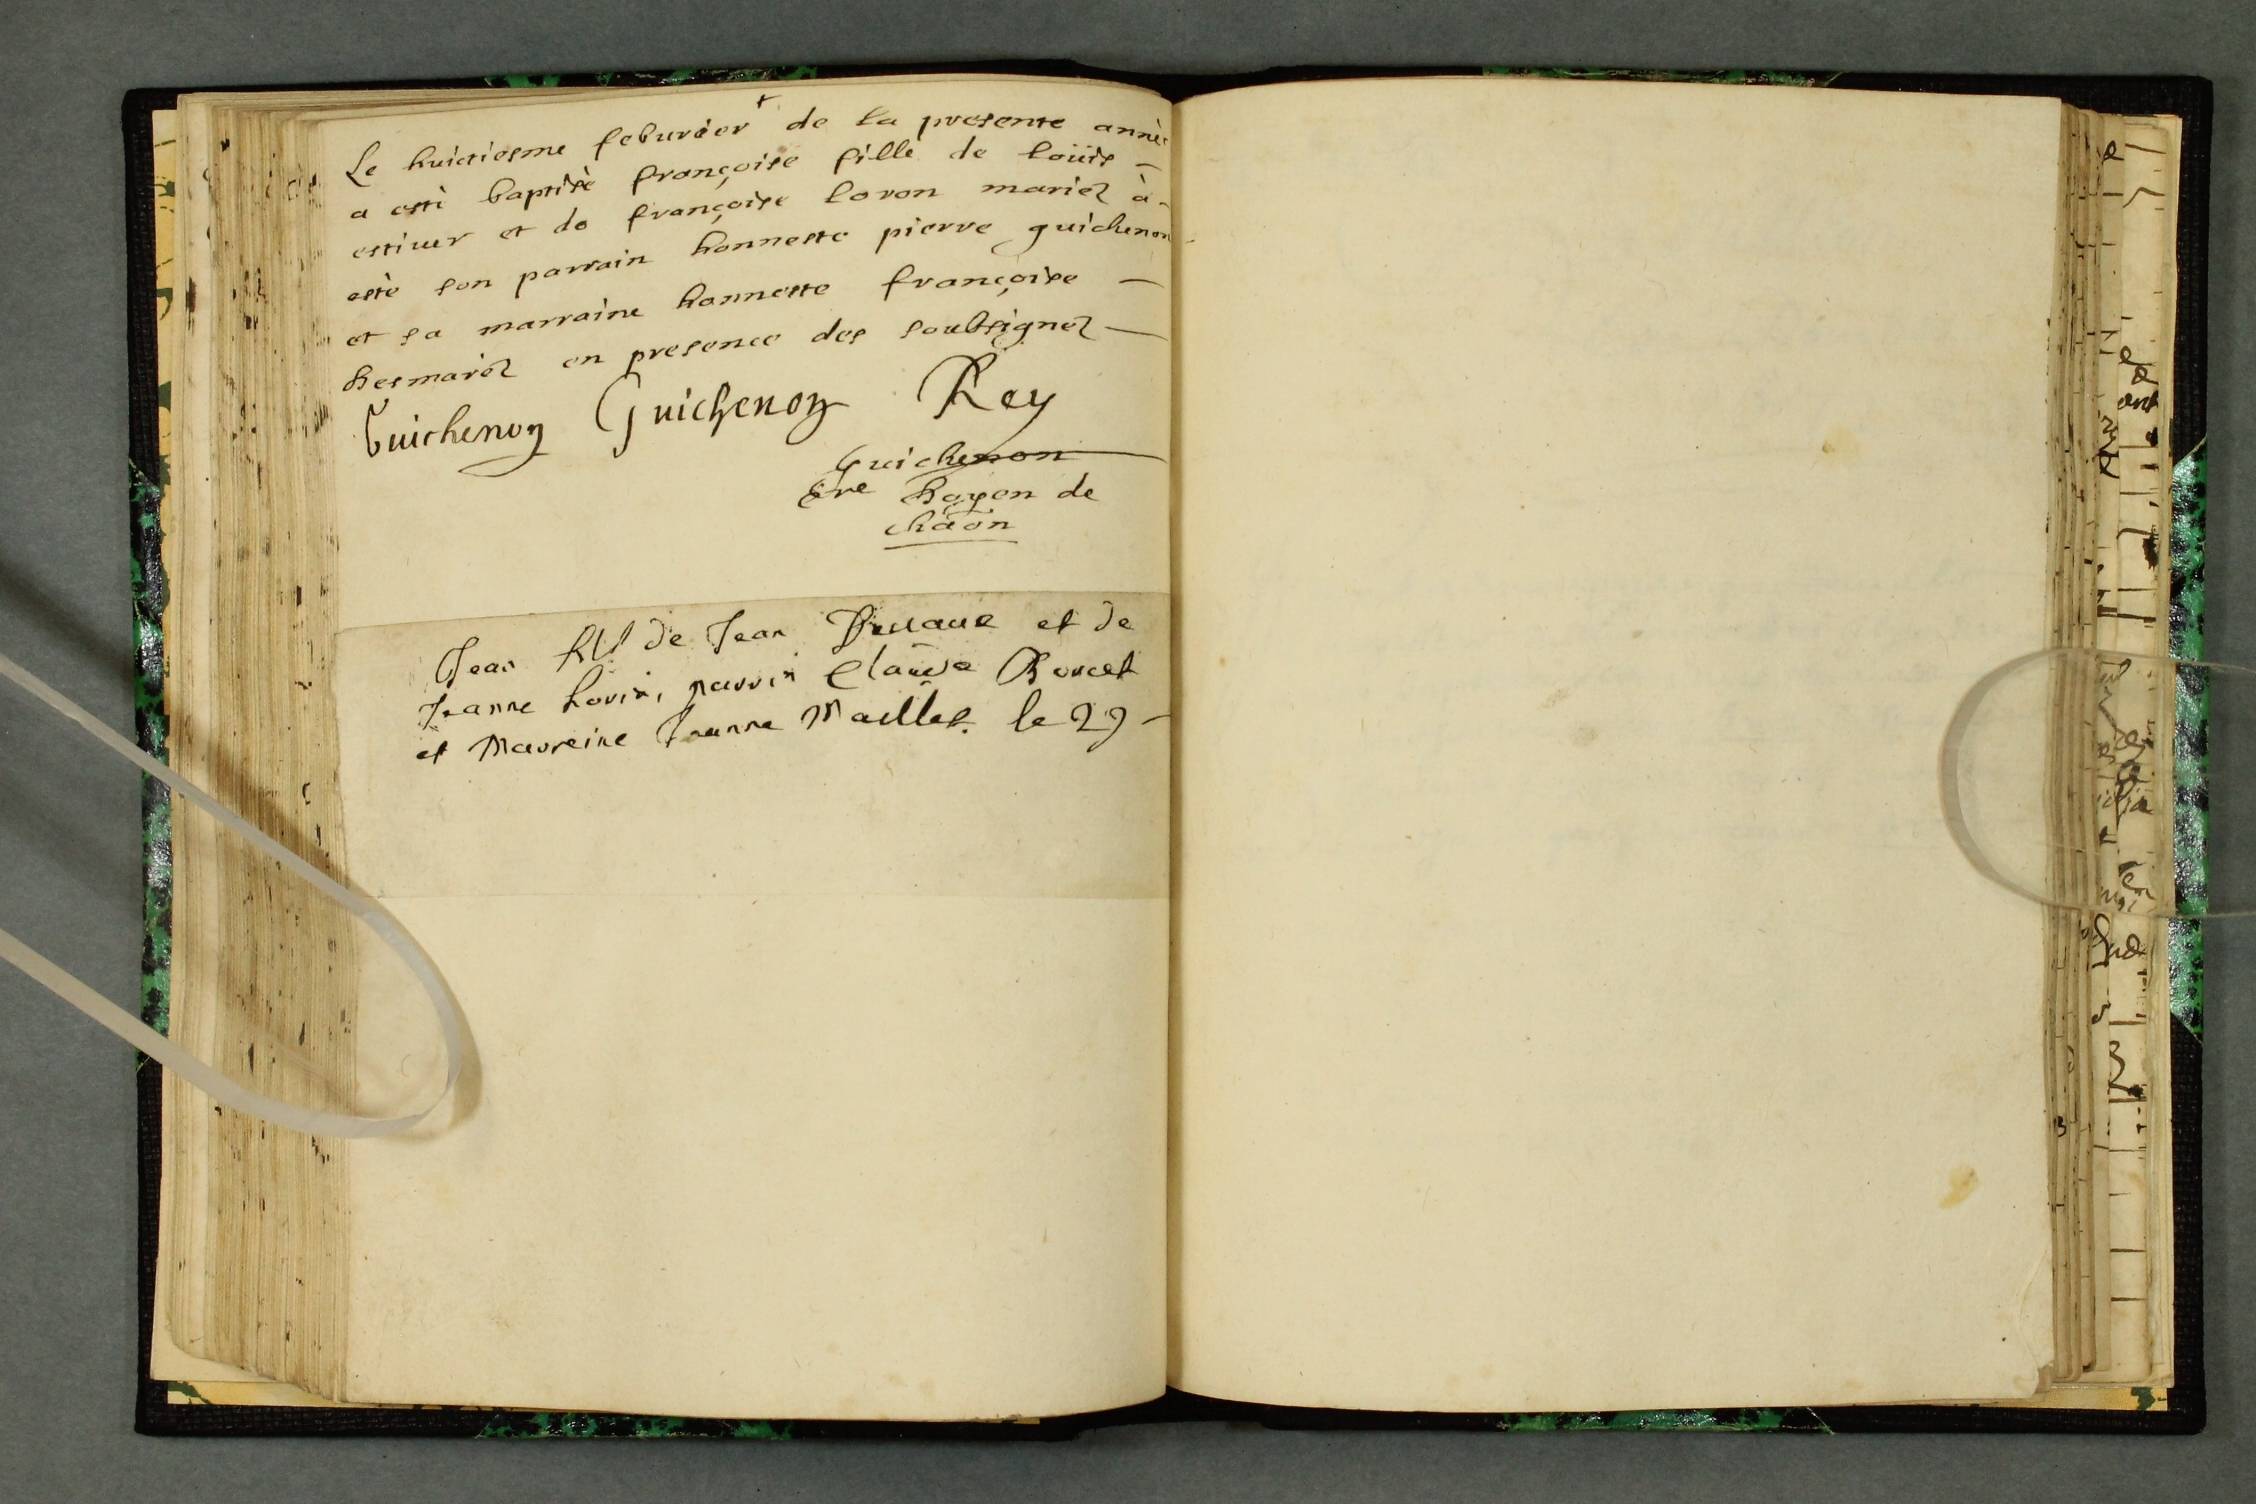 Le huictiesme feburier de la presente année
a esté baptisé françoise fille de loüis
estiuer et de françoise loron mariez à
esté son parrain honneste pierre guichenon
et sa marraine honneste françoise
hesmarez en presence des soubsignez
Guichenon Guichenon Rey
Guichenon
doyen de
chaõn
Jean fils de Jean et de
Jeanne Lorin, parrin Claude Borcet
et Maureine Jeanne Maillet. le 29